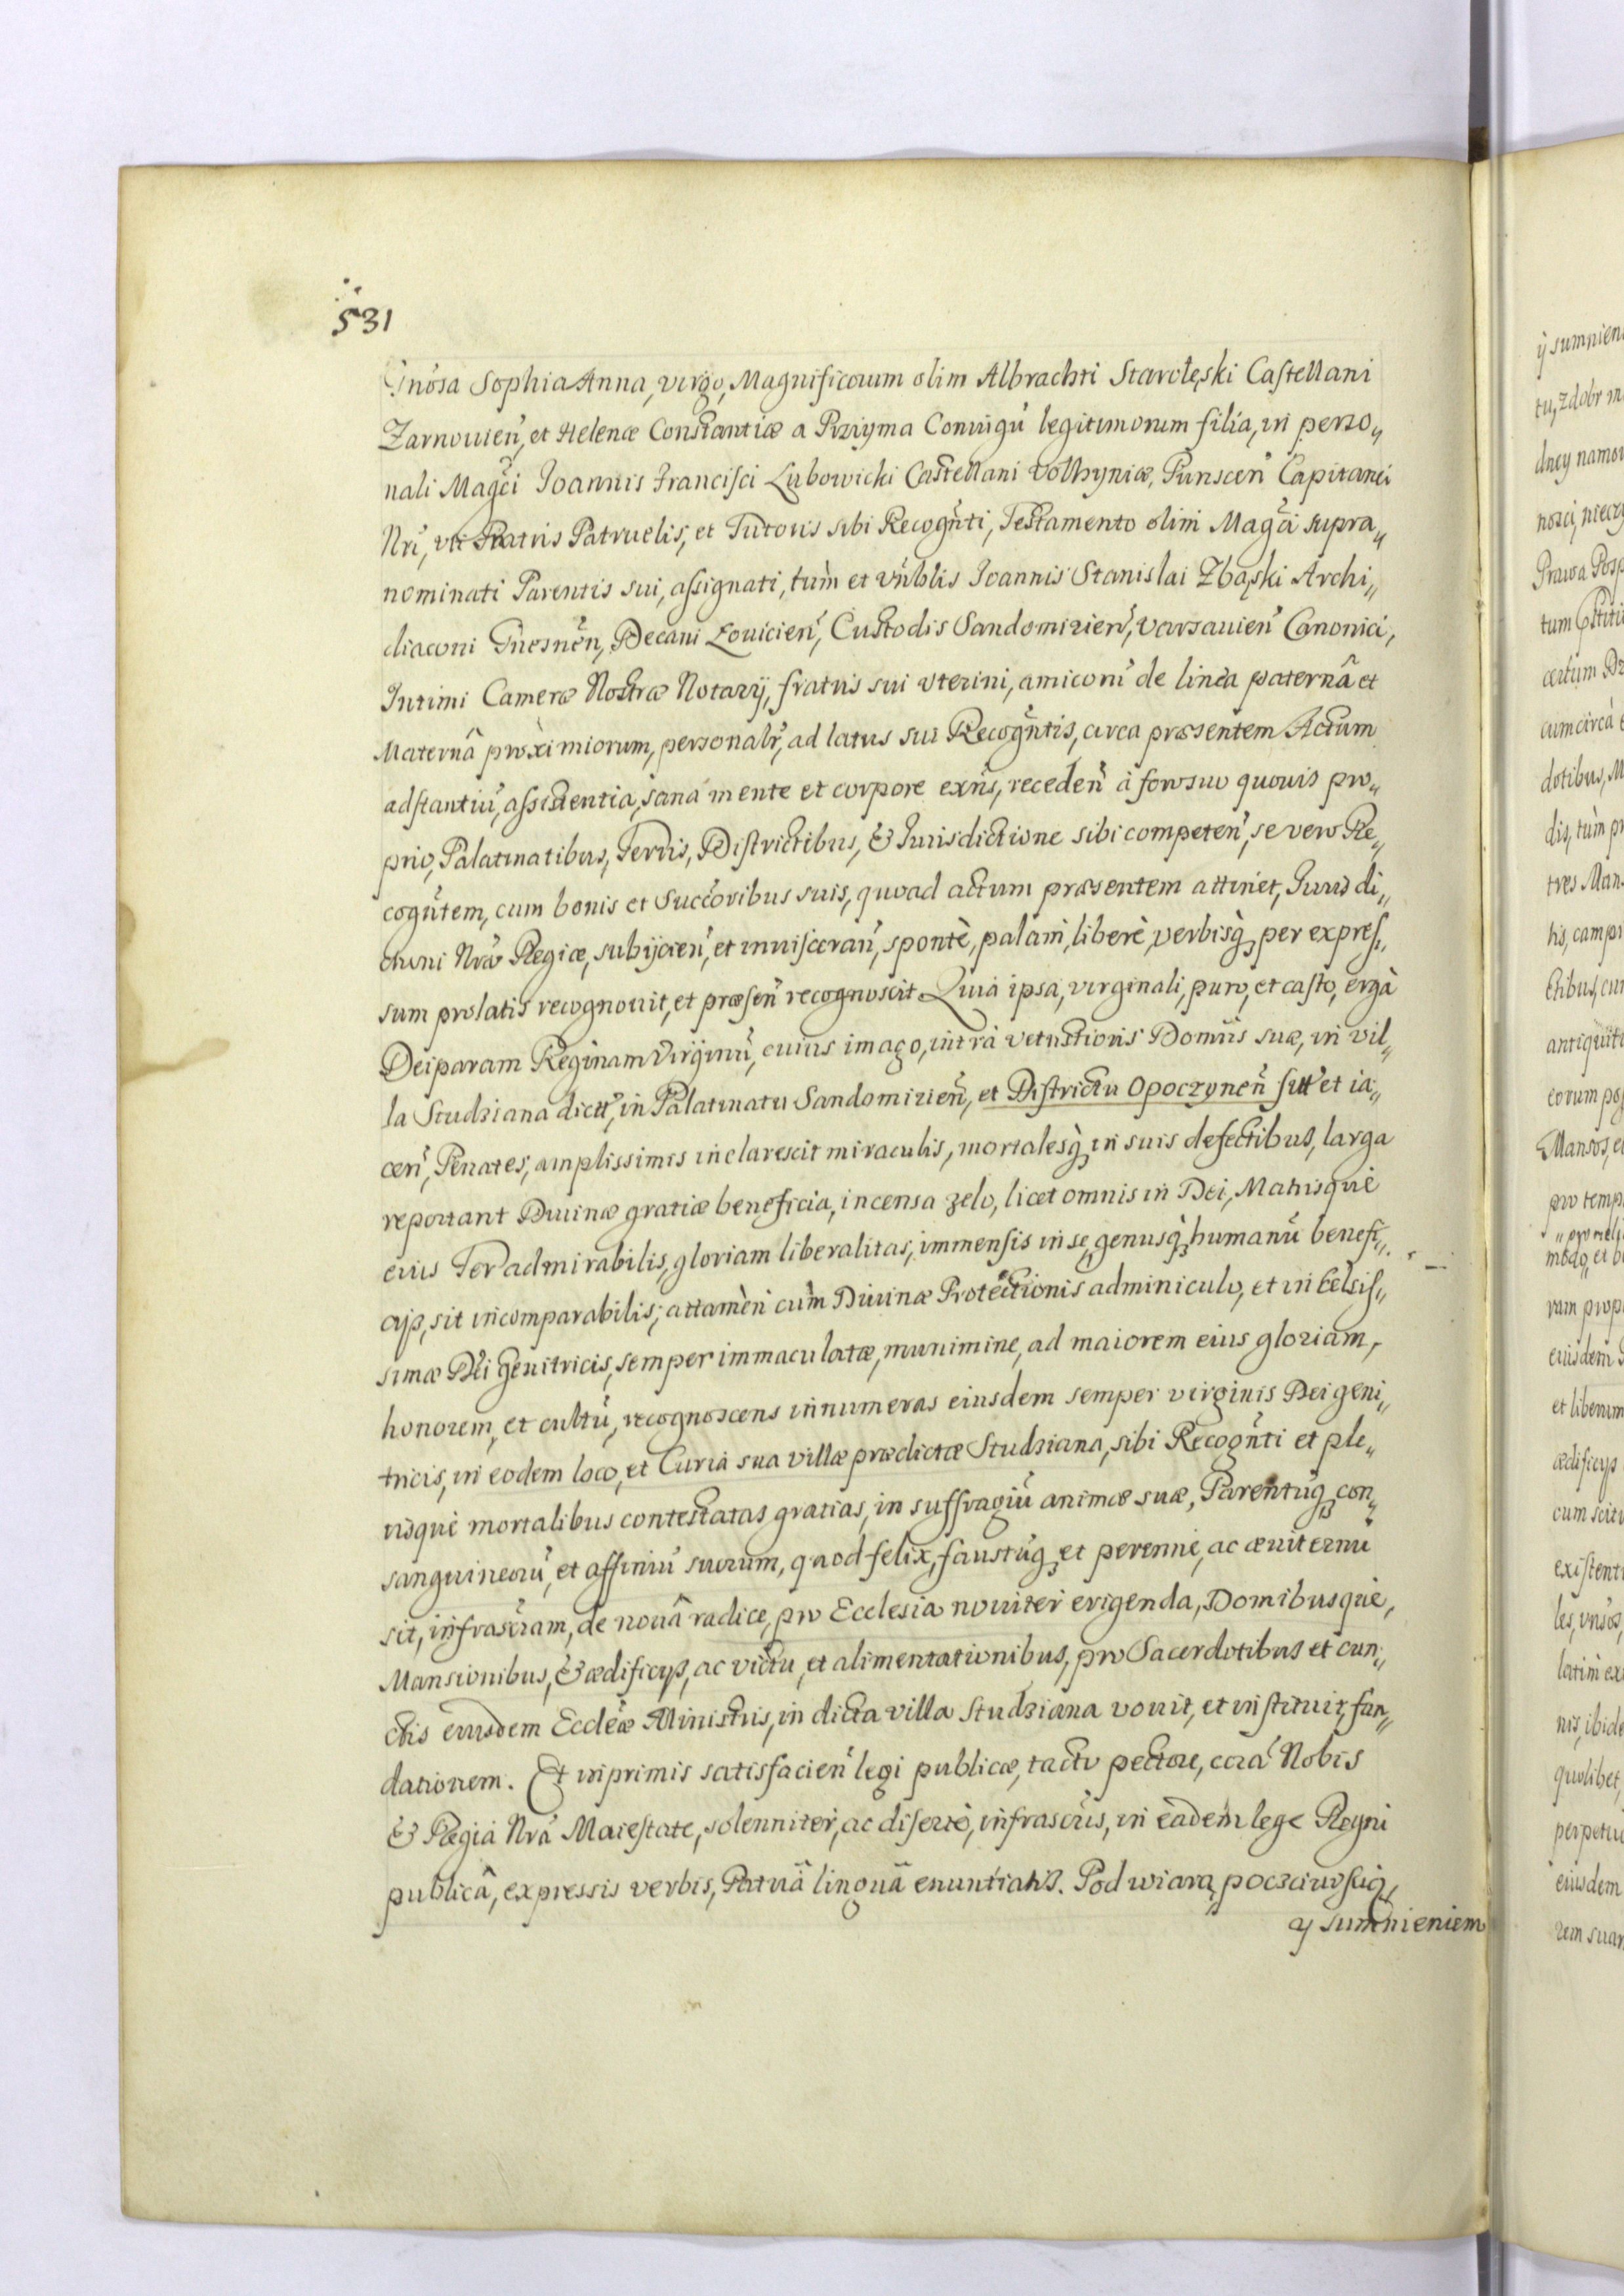 531
Gnosa Sophia Anna, virgo, Magnificorum olim Albrachti Starołęski Castellani
Zarnouien̄, et Helenæ Constantiæ a Przyyma Coniugū legitimorum filia, in perso„
nali Magc̄i Joannis Francisci Lubowicki Castellani Volhyniæ, Punscen̄ Capitanei
Nrī, vti Fratris Patruelis, et Tutoris sibi Recogn̄ti, Testamento olim Magc̄i supra„
nominati Parentis sui, assignati, tùm et Vn̄blis Joannis Stanislai Zbąski Archi„
diaconi Gnesnēn, Decani Louicien̄, Custodis Sandomirien̄, Varsauien̄ Canonici,
Intimi Cameræ Nostræ Notarij, fratris sui vterini, amicorū de linea paternâ et
Maternâ proximiorum, personalr̄, ad latus sui Recogn̄tis, circa præsentem Actum
adstantiū, assistentia, sana mente et corpore exn̄s, receden̄ à foro suo quouis pro„
prio, Palatinatibus, Terris, Districtibus, & Jurisdictione sibi competen̄, se vero Re„
cogn̄tem, cum bonis et Succōribus suis, quoad actum præsentem attinet, Juris di„
ctioni Nrǣ Regiæ, subijcien̄, et inuisceran̄, spontè, palàm, liberè, verbisq; per expres„
sum prolatis recognouit, et præsen̄ recognoscit. Quia ipsa, virginali, puro, et casto, ergà
Deiparam Reginam Virginū, cuius imago, intrà vetustioris Domûs suæ, in vil„
la Studziana dictt̄, in Palatinatu Sandomirien̄, et Districtu Opoczynen̄ sitt̄ et ia„
cen̄, Penates, amplissimis inclarescit miraculis, mortalesq; in suis defectibus, larga
reportant Diuinæ gratiæ beneficia, incensa zelo, licet omnis in Dei, Matrisque
eius Ter admirabilis, gloriam liberalitas, immensis in se, genusq; humanū benefi„
cijs, sit incomparabilis; attamèn cùm Diuinæ Protectionis adminiculo, et in Celsis„
simæ Dei genitricis, semper immaculatæ, munimine, ad maiorem eius gloriam,
honorem, et cultū, recognoscens innumeras eiusdem semper virginis Dei geni„
tricis, in eodem loco, et Curia sua villæ prædictæ Studziana, sibi Recogn̄ti et ple„
risque mortalibus contestatas gratias, in suffragiū animæ suæ, Parentūq; con„
sanguineorū, et affiniū suorum, quod felix, faustūq; et perenne, ac æuiternū
sit, infrascr̄am, de nouâ radice, pro Ecclesia nouiter erigenda, Domibusque,
Mansionibus, & ædificijs, ac victu, et alimentationibus, pro Sacerdotibus et cun„
ctis eiusdem Eccleǣ Ministris, in dicta villa Studziana vouit, et instituit, fun„
dationem. Et inprimis satisfacien̄ legi publicæ, tacto pectore, corā Nobis
& Regia Nrā Maiestate, solenniter, ac disertè, infrascr̄is, in eadem lege Regni
publicâ, expressis verbis, Patriâ linguâ enuntiatis. Pod wiarą, poczciwością,
y sumnieniem